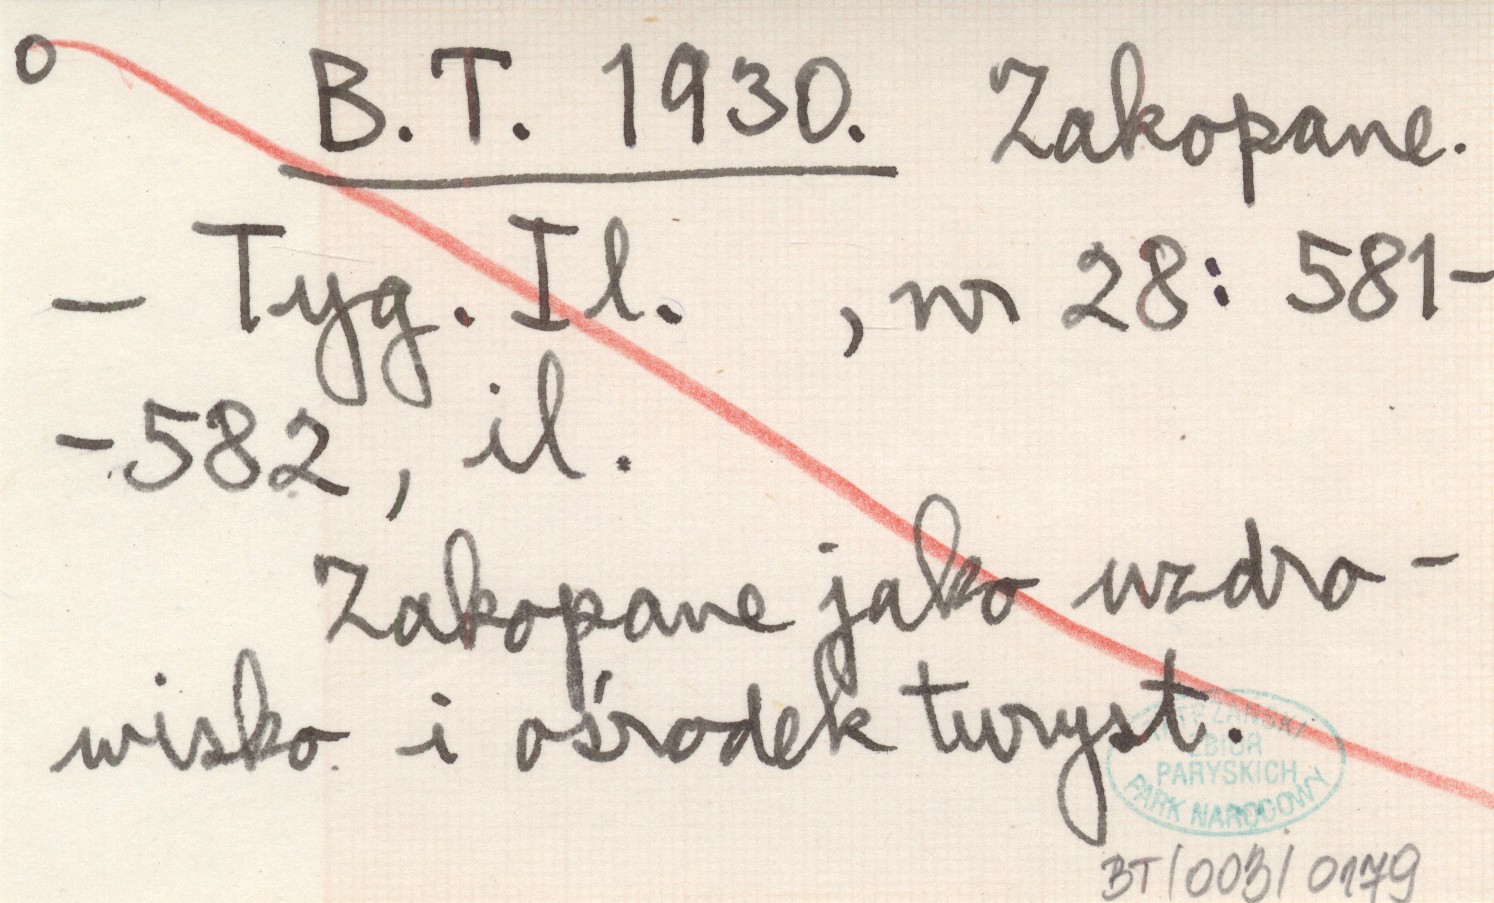 o B.T. 1930. Zakopane.
— Tyg. Il. , nr 28: 581-
-582, il.
Zakopane jako uzdro-
wisko i ośrodek turyst.
TATRZAŃSKI
ZBIÓR
PARYSKICH
PARK NARODOWY
BT/003/0179